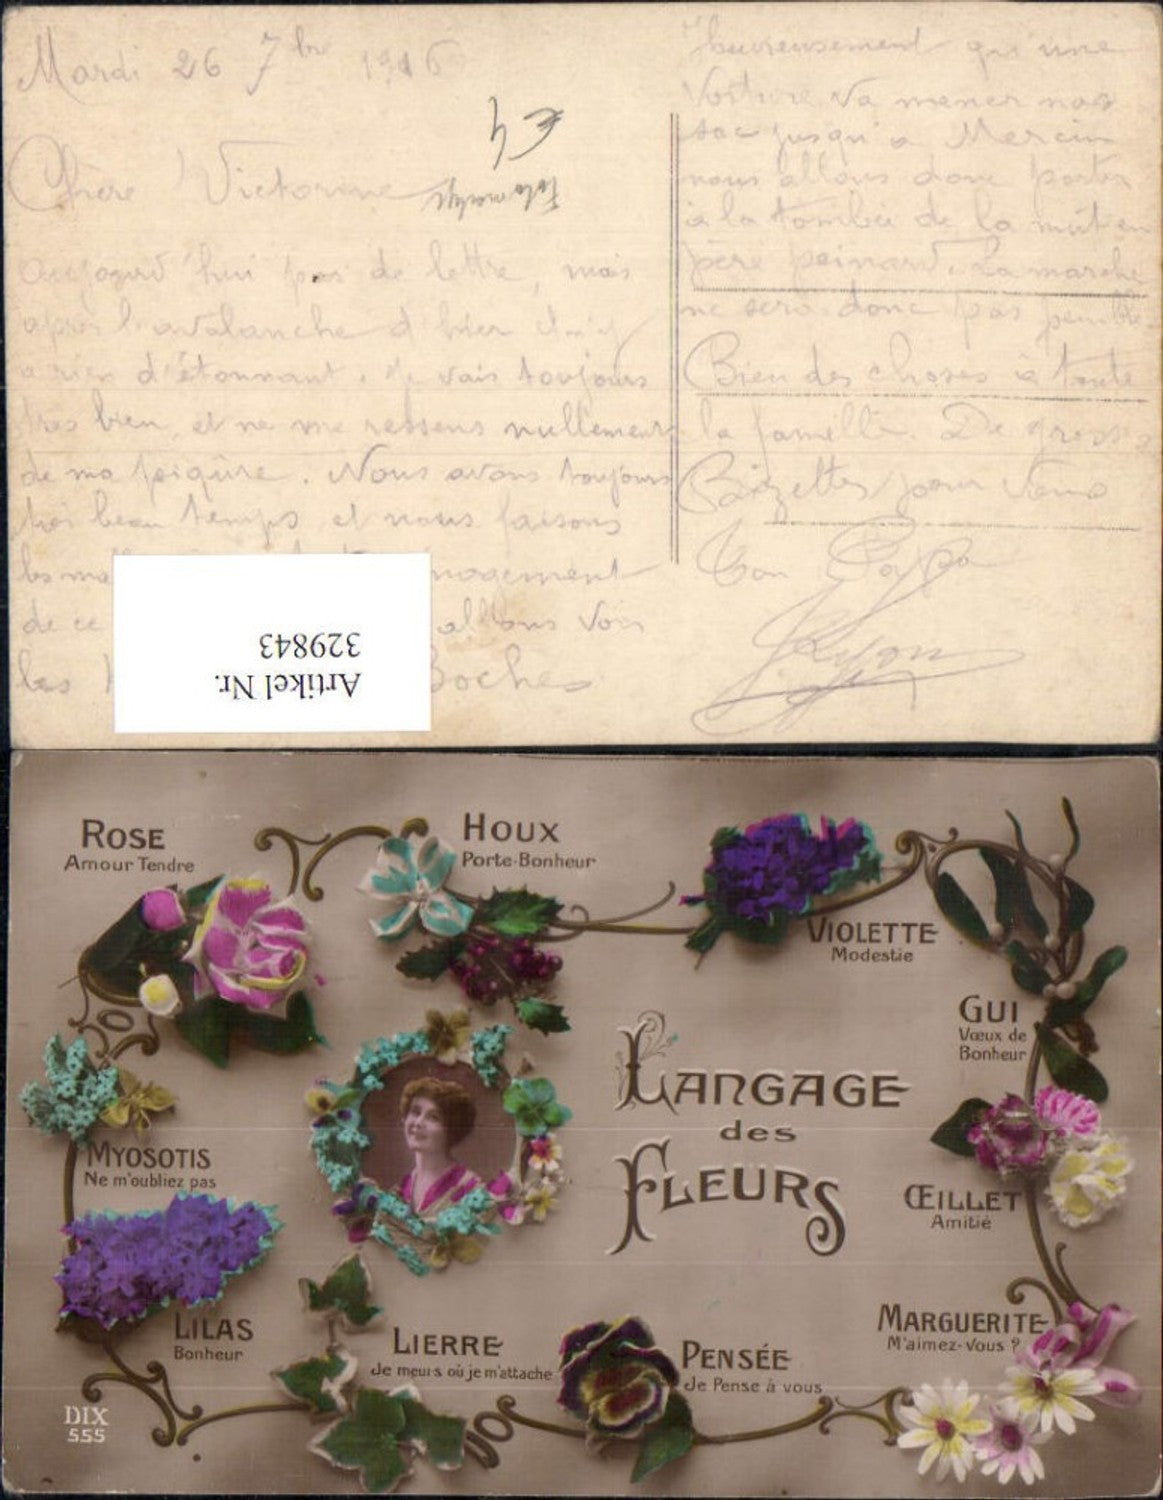 Mardi 26 7bre 1916
€ 4
Chère Victorine
Aujourd'hui pas de lettre, mais
après l'avalanche d'hier il n'y
a rien d'étonnant. Je vais toujours
très bien, et ne me ressens nullement
de ma piqûre. Nous avons toujours
très beau temps, et nous faisons
les
de ce allons voir
les Boches
Artikel Nr.
329843
Heureusement qu'une
voiture va mener nos
sac jusqu'a Mercin
nous allons donc partir
à la tombée de la nuit en
père peinard. La marche
ne sera donc pas pénible.
Bien des choses à toute
la famille. De grosses
Baizettes pour vous
Ton Papa
ROSE
Amour Tendre
HOUX
Porte-Bonheur
VIOLETTE
Modestie
GUI
Vœux de
Bonheur
LANGAGE
des
FLEURS
MYOSOTIS
Ne m'oubliez pas
ŒILLET
Amitié
LILAS
Bonheur
LIERRE
Je meurs où je m'attache
PENSÉE
Je Pense à vous
MARGUERITE
M'aimez-Vous ?
DIX
555